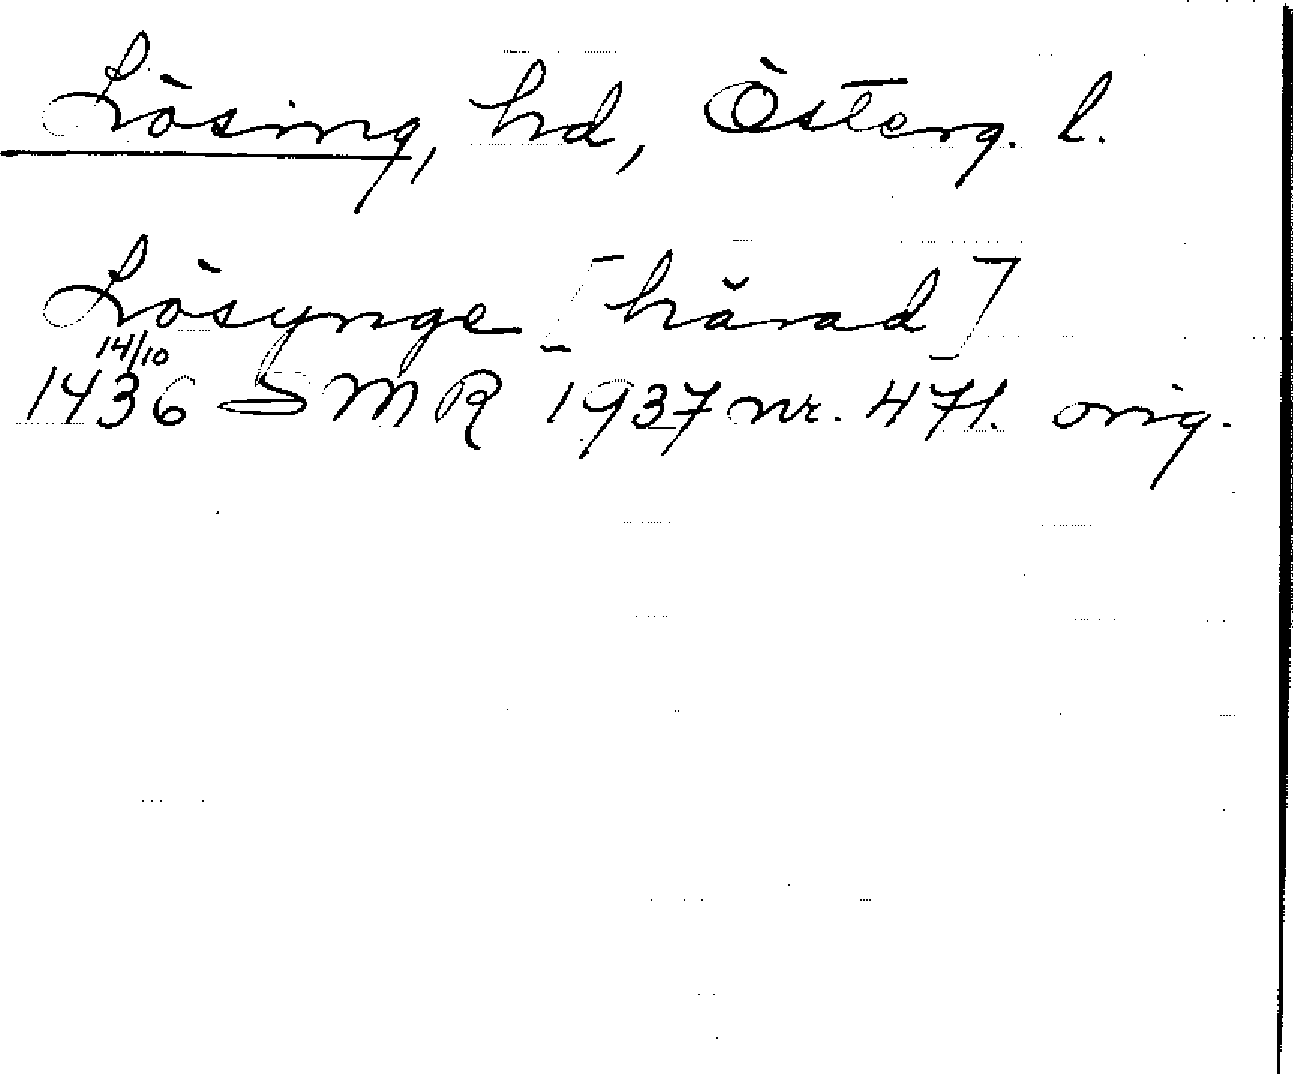 Lösing, hd, Österg. l.
Lösynge [härad]
14/10
1436 SMR 1937 nr. 471. orig.